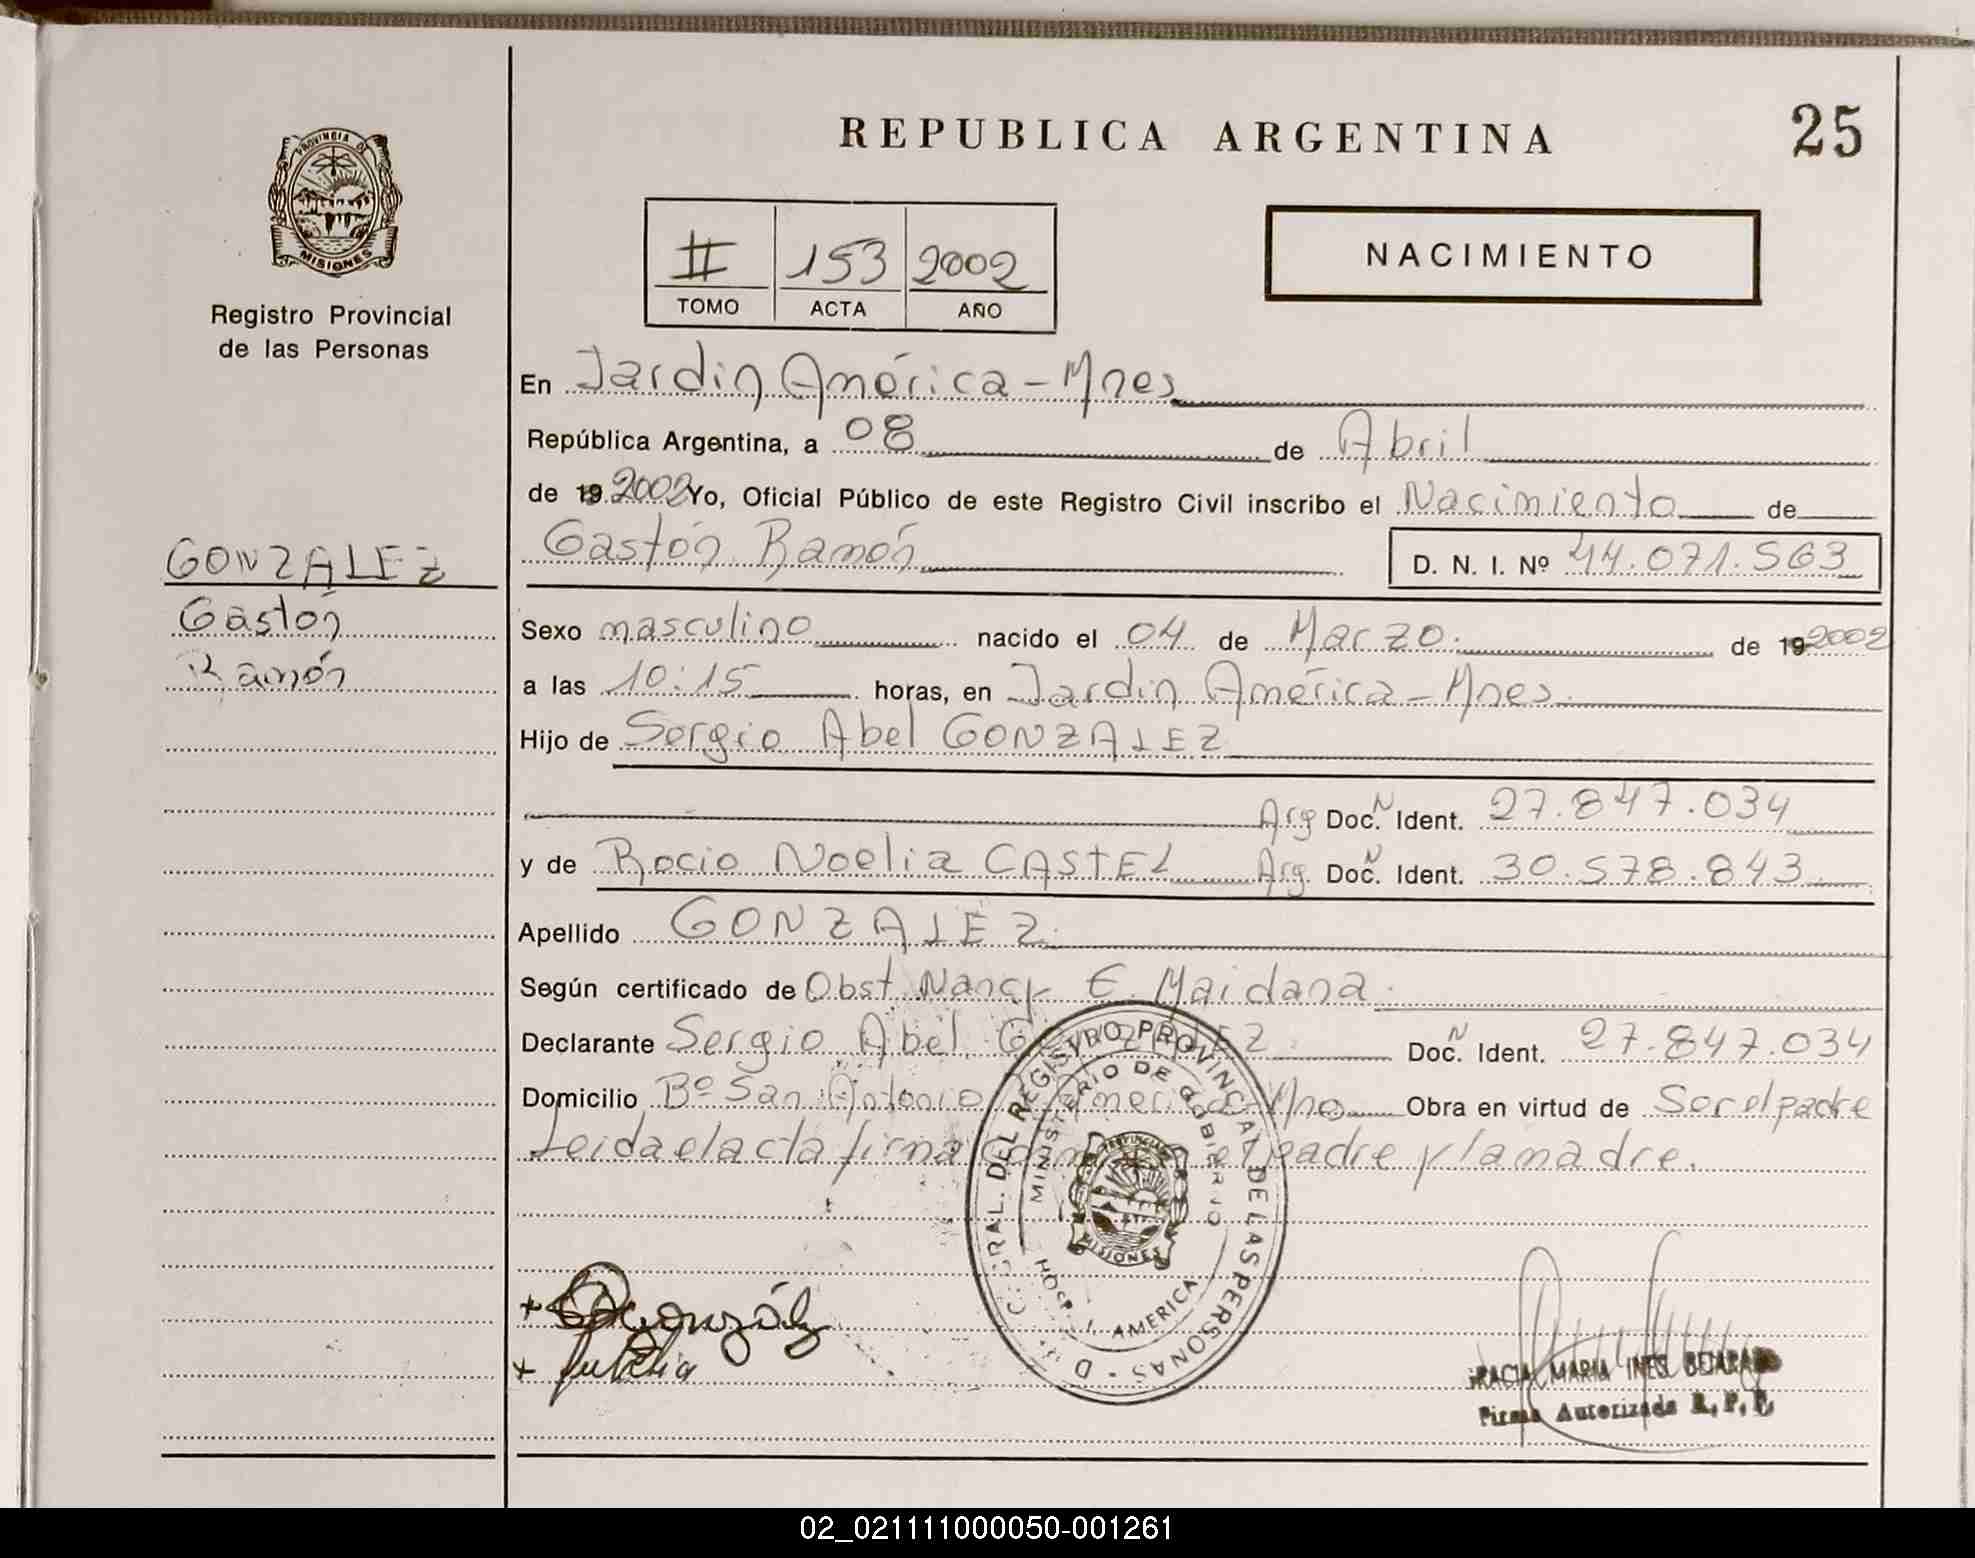 REPUBLICA ARGENTINA
25
PROVINCIA DE
MISIONES
Registro Provincial
de las Personas
II 153 2002
TOMO ACTA AÑO
NACIMIENTO
En Jardin América - Mnes
República Argentina, a 08 de Abril
de 19 2002 Yo, Oficial Público de este Registro Civil inscribo el Nacimiento de
Gastón Ramón
D. N. I. Nº 44.071.563
GONZALEZ
Gastón
Ramón
Sexo masculino nacido el 04 de Marzo. de 19 2002
a las 10:15 horas, en Jardin América - Mnes.
Hijo de Sergio Abel GONZALEZ
Arg Doc. N Ident. 27.847.034
y de Rocio Noelia CASTEL Arg. Doc. N Ident. 30.578.843
Apellido GONZALEZ
Según certificado de Obst. Nancy E. Maidana.
Declarante Sergio Abel GONZALEZ. Doc. N Ident. 27.847.034
Domicilio Bº San Antonio J. América - Mnes Obra en virtud de Ser el padre
Leida el acta firma el padre y la madre.
REGISTRO PROVINCIAL DE LAS PERSONAS
MINISTERIO DE GOBIERNO
PROVINCIA DE
MISIONES
HOSP. J. AMERICA
González
MARIA INES BEJARANO
Firma Autorizada R. P. P.
02_021111000050-001261